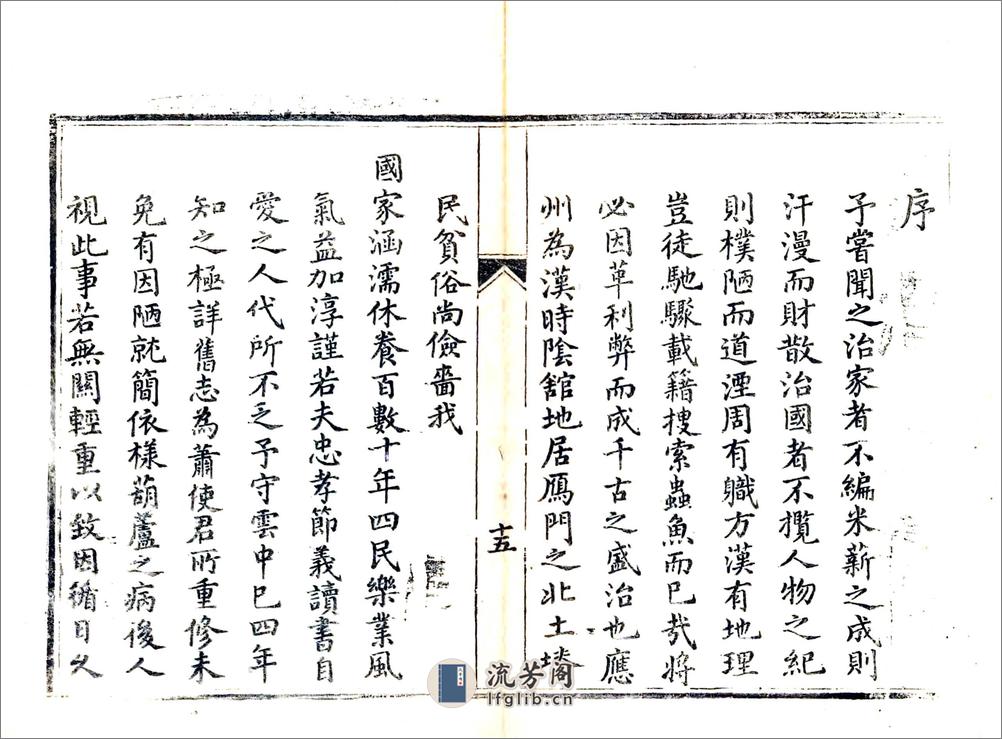 序
予嘗聞之治家者不編米薪之成則
汗漫而財散治國者不攬人物之紀
則樸陋而道湮周有職方漢有地理
豈徒馳驟載籍捜索蟲魚而已哉將
必因革利弊而成千古之盛治也應
州為漢時陰舘地居鴈門之北土塉
民貧俗尚儉嗇我
國家涵濡休養百數十年四民樂業風
氣益加淳謹若夫忠孝節義讀書自
愛之人代所不乏予守雲中已四年
知之極詳舊志為蕭使君所重修未
免有因陋就簡依樣葫蘆之病後人
視此事若無關輕重以致因循日久
十五
流芳阁
lfglib.cn